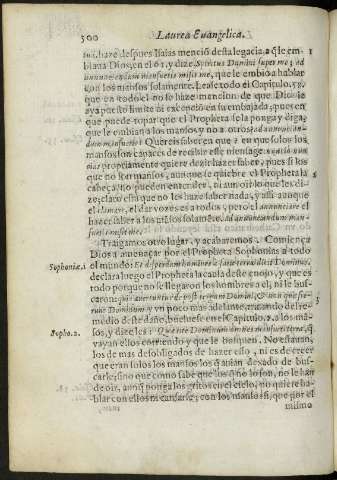 500 Laurea Euangelica.
tua, haze despues Isaias menciõ desta legacia, a q̃ le em-
biaua Dios, en el 61, y dize Spiritus Domini super me; ad
annunciandum mansuetis misit me, que le embiò a hablar
con los mansos solamente. Lease todo el Capitulo. 58,
que en todo el no se haze mencion de que Dios le
aya puesto limite ni excencio en su embajada; pues en
que puede topar que el Propheta se la ponga y diga,
que le embian a los mansos y no a otros; ad annuncian-
dum mansuetis? Quereis saber en que? en que solos los
mansos son capaces de recibir este mensage.
mas propriamente quiere dezir hazer saber, pues si los
que no son mansos, aunque se quiebre el Propheta la
cabeça, no pueden entender, ni aun oir lo que les di-
ze; claro està que no les haze saber nada, y assi aunque
el clamare, el dar vozes es a todos, pero el annunciare el
hazer saber a los mãsos solamẽte. ad annunciandum man-
suetis misit me.
Traigamos otro lugar, y acabaremos. Comiença
Dios a amenaçar por el Propheta Sophonias a todo
Sophoniæ. 1 el mundo: Et disperdam homines à facie terræ dicit Dominus,
declara luego el Propheta la causa deste enojo, y que es
todo porque no se llegaron los hombres a el, ni le bus-
caron: qui auertuntur de post tergum Domini, & non quæsie-
runt Dominum y vn poco mas adelante, tratando del re-
medio deste daño, buelue se en el Capitulo. 2. a los mã-
Sopho. 2. sos, y dize les: Quærite Dominum omnes mansueti terræ, q̃
vayan ellos corriendo y que le busquen. No estauan,
los de mas desobligados de hazer esto, ni es de creer
que eran solos los mansos los q̃ auian dexado de bus-
carle; sino que como sabe que los q̃ no lo son, no le han
de oir, aunq̃ ponga los gritos en el cielo, no quiere ha-
blar con ellos ni cansarse; con los mansos si, que por el
mismo